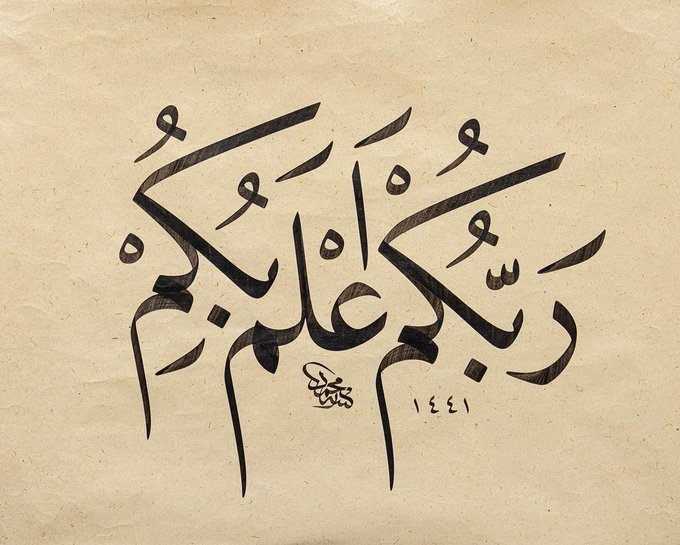 رَبُّكُمْ أَعْلَمُ بِكُمْ
١٤٤١